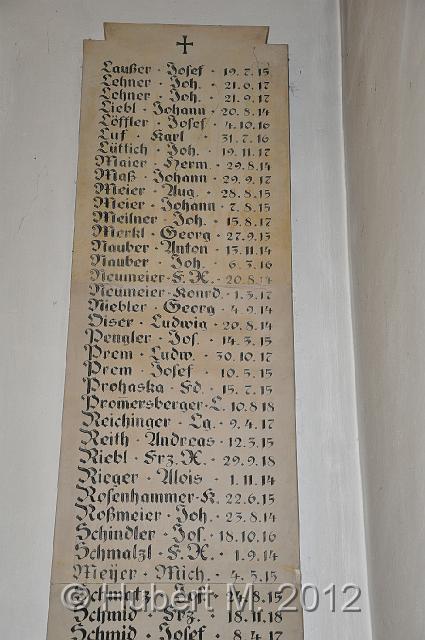 Laußer · Josef · 19.7.15
Lehner · Joh. · 21.6.17
Lehner · Joh. · 21.9.17
Liebl · Johann · 20.8.14
Löffler · Josef · 4.10.16
Luf · Karl · 31.7.16
Lüttich · Joh. · 19.11.17
Maier · Herm. · 29.8.14
Maß · Johann · 29.9.17
Meier · Aug. · 28.8.15
Meier · Johann · 7.8.15
Meilner · Joh. · 15.8.17
Merkl · Georg · 27.9.15
Nauber · Anton · 13.11.14
Nauber · Joh. · 6.3.16
Neumeier · F. X. · 20.8.14
Neumeier · Konrd. · 1.3.17
Niebler · Georg · 4.9.14
Oiser · Ludwig · 20.8.14
Pengler · Jos. · 14.3.15
Prem · Ludw. · 30.10.17
Prem · Josef · 10.5.15
Prohaska · Ed. · 15.7.15
Promersberger · L. 10.8.18
Reichinger · Lg. · 9.4.17
Reith · Andreas · 12.3.15
Riebl · Frz. X. · 29.9.18
Rieger · Alois · 1.11.14
Rosenhammer · K. 22.6.15
Roßmeier · Joh. · 23.8.14
Schindler · Jos. · 18.10.16
Schmalzl · F. X. · 1.9.14
Meÿer · Mich. · 4.5.15
Schmatz · 24.8.15
Schmid · Frz. · 18.11.18
Schmid · Josef · 8.4.17
© Hubert M. 2012